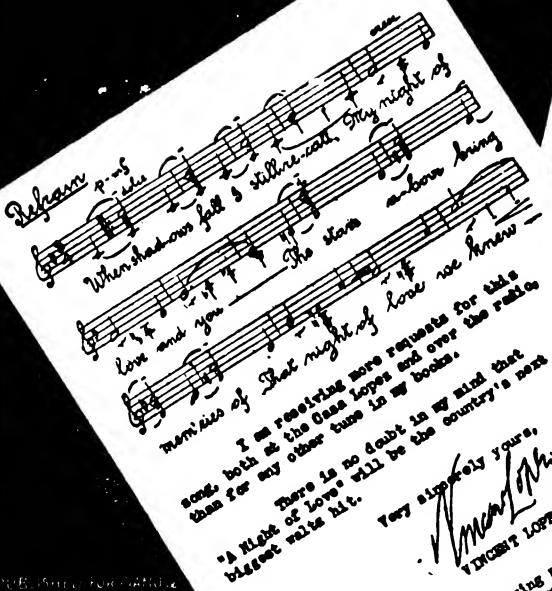 Refrain
p-mf
When shad-ows fall I still re-call, My night of
love and you The stars a-bove bring
mem'ries of That night of love we knew
I am receiving more requests for this
song, both at the Casa Lopez and over the radio,
than for any other tune in my books.
There is no doubt in my mind that
"A Night of Love" will be the country's next
biggest waltz hit.
Very sincerely yours,
Vincent Lopez
VINCENT LOPE
PUBLISHED FOR